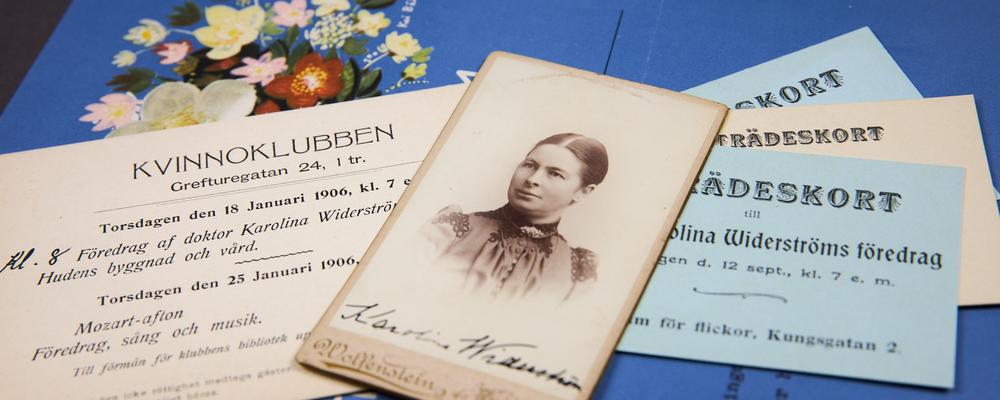 KVINNOKLUBBEN
Grefturegatan 24, 1 tr.
Torsdagen den 18 Januari 1906, kl. 7 e
Kl. 8 Föredrag af doktor Karolina Widerströ
Hudens byggnad och vård.
Torsdagen den 25 Januari 1906,
Mozart-afton
Föredrag, sång och musik.
Till förmån för klubbens bibliotek up
icke rättighet medtaga gäster
Karolina Widerström
Wolfenstein
SKORT
TRÄDESKORT
RÄDESKORT
till
olina Widerströms föredrag
gen d. 12 sept., kl. 7 e. m.
m för flickor, Kungsgatan 2.